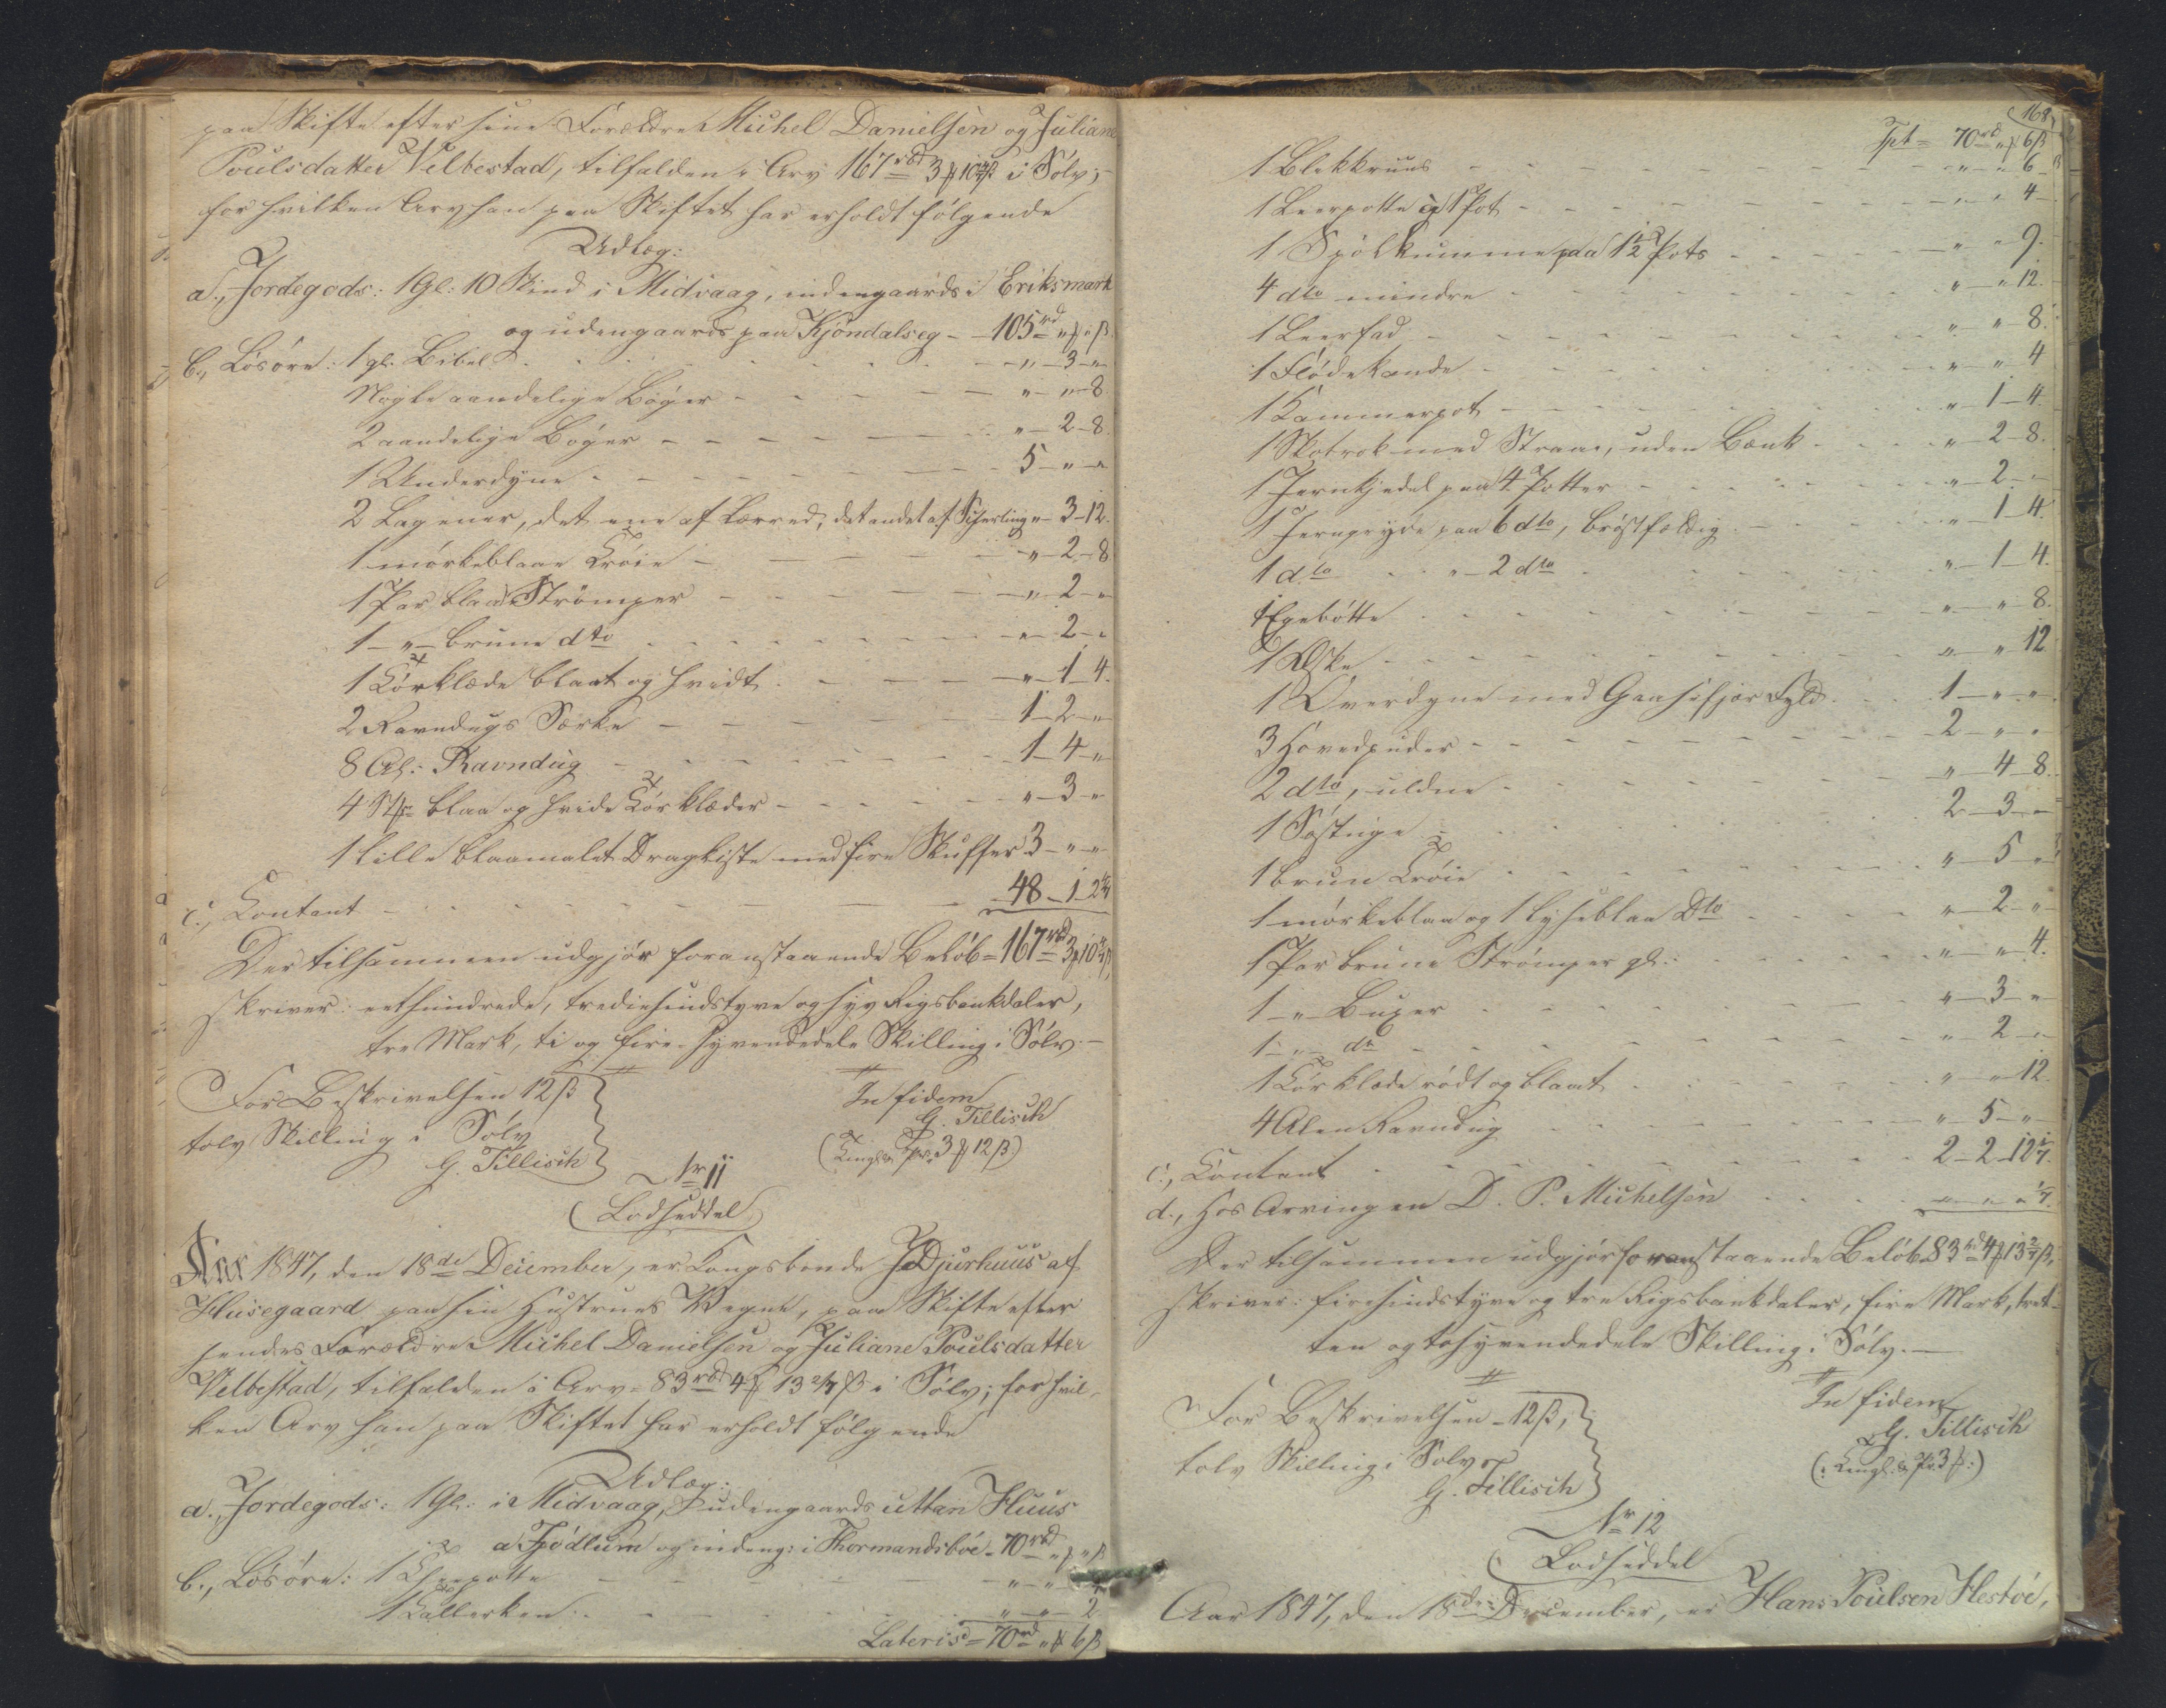 paa Skifte efter sine Forældre Michel Danielsen og Juliane
Poulsdatter Velbestad, tilfalden i Arv 167 rbd 3 ₻ 10 4/7 ß i Sølv;
for hvilken Arv han paa Skiftet har erholdt følgende
Udlæg:
a., Jordegods: 1 Gl: 10 Skind i Midvaag, indengaards i Eriksmark
og udengaards paa Kjöndalseg - 105 rd " ₻ " ß
b., Løsøre: 1 gl. Bibel - " - 3 - "
Nogle aandelige Bøger - " - " - 8
2 aandelige Bøger - " - 2 - 8.
1 Underdyne - 5 - " - "
2 Lagener, det ene af Lærred, det andet af Scherting " - 3 - 12.
1 mørkeblaae Trøie - " - 2 - 8
1 Par blaa Strömper - " - 2 - "
1 - " - brune dto - " - 2 - "
1 Tørklæde blaat og hvidt - " - 1 - 4.
2 Ravndugs Særke - 1 - 2 - "
8 Al: Ravndug - 1 - 4 - "
4 Stk blaa og hvide Tørklæder - " - 3 - "
1 lille blaamalet Dragkiste med fire Skuffer 3 - " - "
c., Contant - 48 - 1 - 2 4/7
Der tilsammen udgjør foranstaaende Beløb = 167 rbd 3 ₻ 10 4/7 ß,
skriver: eethundrede, trediesindstyve og syv Rigsbankdaler,
tre Mark, ti og fire syvendedele Skilling i Sølv. -
For Beskrivelsen 12 ß
tolv Skilling i Sølv
G. Tillisch
In fidem
G. Tillisch
3 ₻ 12 ß)
Nr 11
Lodseddel
Aar 1847, den 18de December, er Kongsbonde J. Djurhuus af
Husegaard paa sin Hustrues Vegne, paa Skifte efter
hendes Forældre Michel Danielsen og Juliane Poulsdatter
Velbestad, tilfalden i Arv = 83 rbd 4 ₻ 13 2/7 ß i Sølv; for hvil-
ken Arv han paa Skiftet har erholdt følgende
Udlæg:
a., Jordegods: 1 Gl: i Midvaag, udengaards uttan Huus
a Tjødlum og indeng: i Thormandsbøe - 70 rbd " ₻ " ß
b., Løsøre: 1 Theepotte - " - "
1 Tallerken - " - " - 2
Lateris = 70 rd " ₻ 6 ß
168
Tpt = 70 rd " ₻ 6 ß
1 Blikkruus - " - " 6 -
1 Leerpotte og 1 Pot - " - " 4 -
1 Spölkumme paa 1 1/2 Pots - " - " 9.
4 dto mindre - " - " 12.
1 Leerfad - " - " - 8.
1 Flødekande - " - " 4
1 Kammerpot - " - 1 - 4.
1 Skotrok med Straae, uden Bænk - " - 2 - 8.
1 Jernkjedel paa 4 Potter - " - 2 - "
1 Jerngryde paa 6 dto, brøstfældig - " - 1 - 4.
1 dto " - 2 dto - " - 1 - 4.
1 Egebøtte - " - " 8.
1 Æske - " - " 12
1 Overdyne med Gaasefjær Fyld - 1 - " - "
3 Hovedpuder - 2 - " - "
2 dto, uldne - " - 4 - 8.
1 Søstrige - 2 - 3 - "
1 brun Trøie - " - 5 - "
1 mørkeblaa og 1 lyseblaa Dto - " - 2 - "
1 Par brune Strömper gl: - " - " 4.
1 - " - Buxer - " - 3 - "
1 - " - do - " - 2 - "
1 Tørklæde rødt og blaat - " - " 12.
4 Alen Ravndug - " - 5 - "
c., Contant - 2 - 2 - 12 1/7.
d., Hos Arvingen D. P. Michelsen - " - " - " 1/7.
Der tilsammen udgjør foranstaaende Beløb 83 rbd 4 ₻ 13 2/7 ß,
skriver: firesindstyve og tre Rigsbankdaler, fire Mark, tret-
ten og to syvendedele Skilling i Sølv. -
For Beskrivelsen - 12 ß,
tolv Skilling i Sølv
G. Tillisch
In fidem
G. Tillisch
3 ₻:)
Nr 12
Lodseddel
Aar 1847, den 18de December, er Hans Poulsen Hestøe,